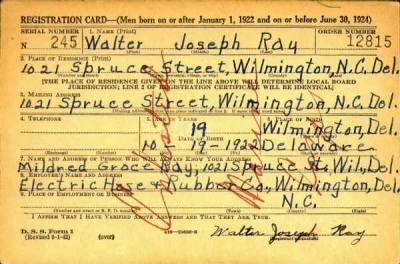 REGISTRATION CARD—(Men born on or after January 1, 1922 and on or before June 30, 1924)
SERIAL NUMBER 1. NAME (Print) ORDER NUMBER
N 245 Walter Joseph Ray 12815
2. PLACE OF RESIDENCE (Print)
1021 Spruce Street, Wilmington, N.C, Del.
[THE PLACE OF RESIDENCE GIVEN ON THE LINE ABOVE WILL DETERMINE LOCAL BOARD
JURISDICTION; LINE 2 OF REGISTRATION CERTIFICATE WILL BE IDENTICAL]
3. MAILING ADDRESS
1021 Spruce Street, Wilmington, N.C, Del.
4. TELEPHONE 5. AGE IN YEARS
19 Wilmington, Del.
DATE OF BIRTH
10-19-1922 Delaware
7. NAME AND ADDRESS OF PERSON WHO WILL ALWAYS KNOW YOUR ADDRESS
Mildred Grace Ray, 1021 Spruce St, Wil, Del.
8. EMPLOYER'S NAME AND ADDRESS
Electric Hose & Rubber Co, Wilmington, Del.
9. PLACE OF EMPLOYMENT OR BUSINESS
N.C.
I AFFIRM THAT I HAVE VERIFIED ABOVE ANSWERS AND THAT THEY ARE TRUE.
D. S. S. Form 1
(Revised 6-1-42)
Walter Joseph Ray